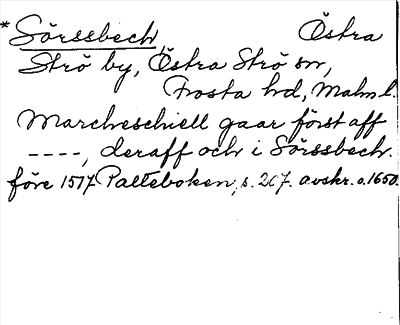 * Sörssbech, Östra
Strö by, Östra Strö sn,
Frosta hd, Malm l.
Marcheschiell gaar först aff
----, deraff och i Sörssbech.
före 1517 Palteboken, s. 207. avskr. o. 1650.